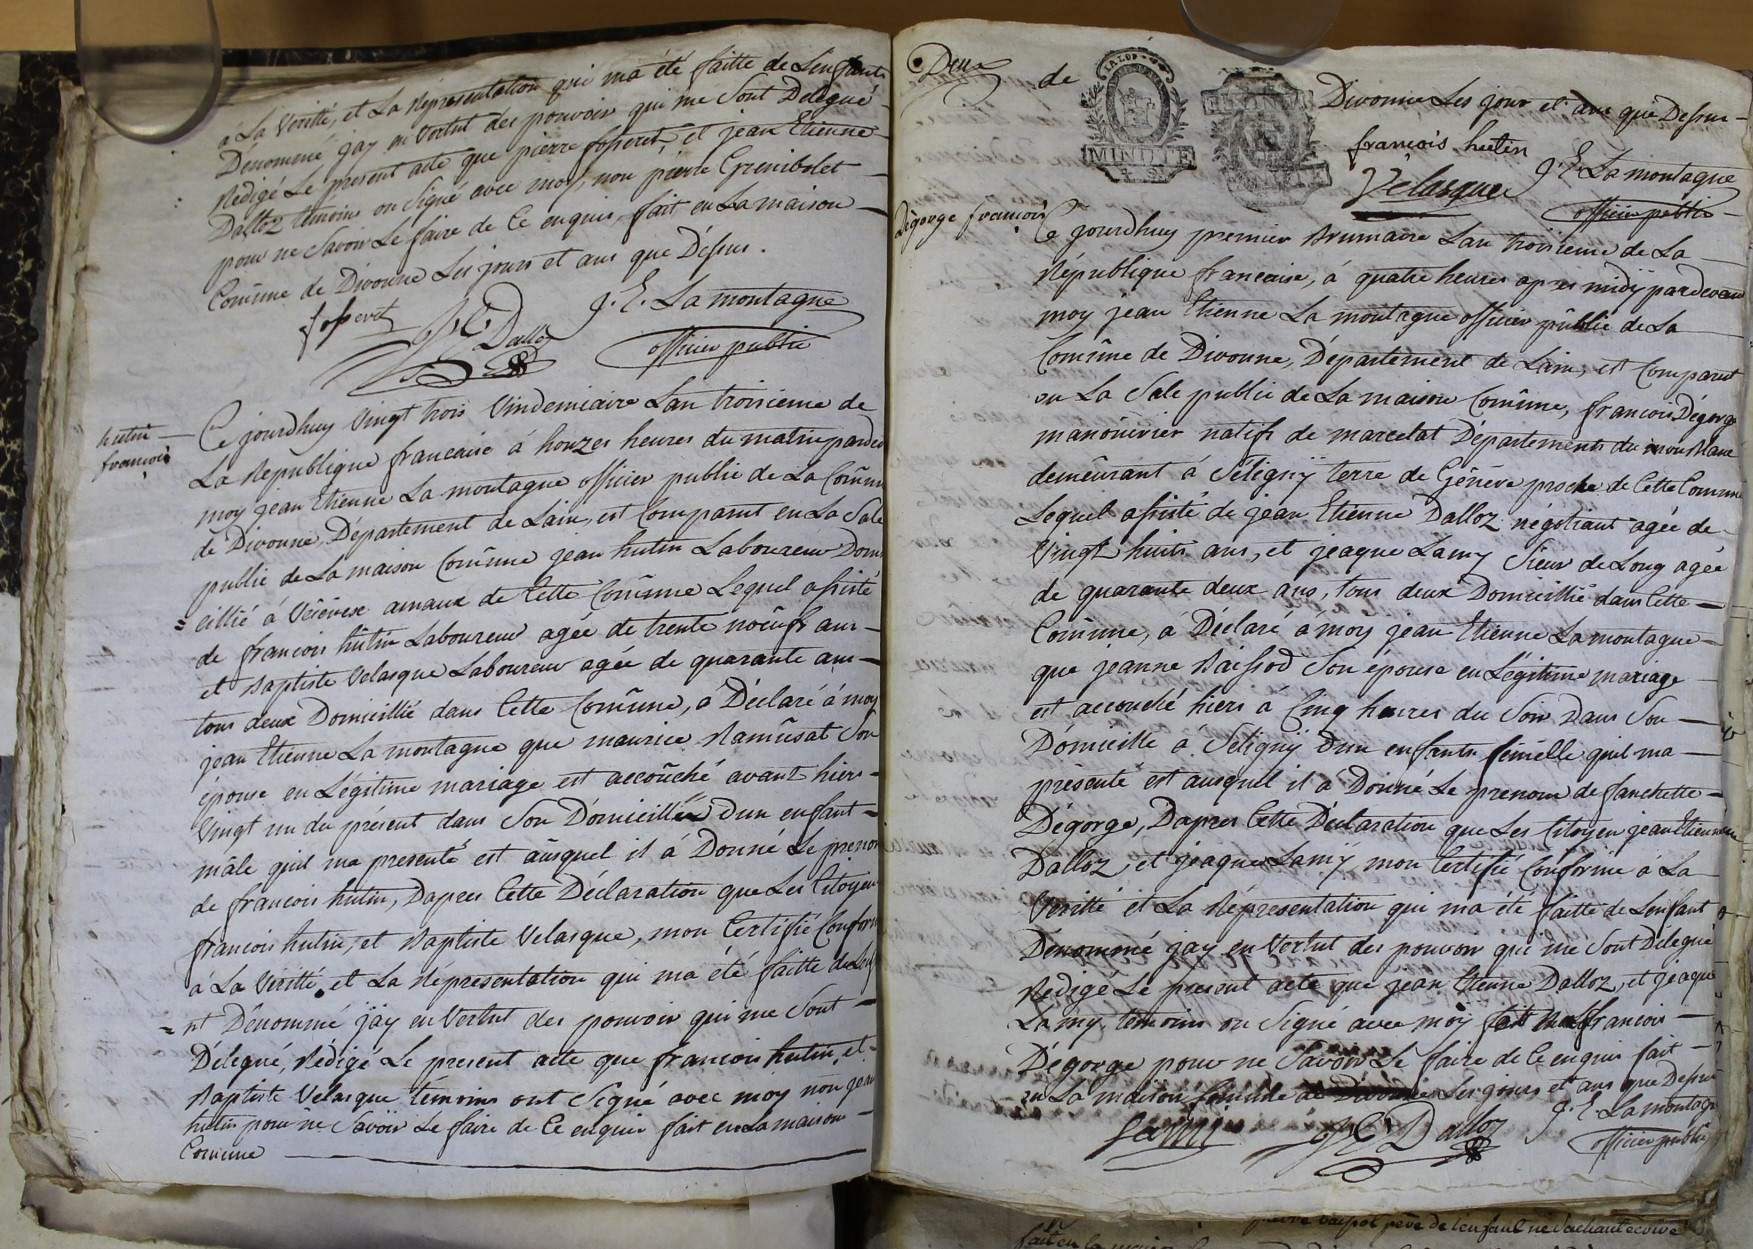 à La Verité, et La Representation qui ma été faitte de Lenfants
Dénommé, jay en Vertut des pouvoir qui me Sont Delegué
Rédigé Le present acte que pierre fosseret, et jean Etienne
Dalloz temoins on Signé avec moy, non pierre Grenibolet
pour ne Savoir Le faire de Ce enquis, fait en La maison
Comûne de Divonne Les jours et ans que Déssus.
fosseret
J. E. Dalloz
J. E. Lamontagne
officier public
hutin
francois
Ce jourdhuy Vingt trois Vindemiaire Lan troisieme de
La Republique francaise à honzes heures du matin pardev
moy jean Etienne La montagne officier public de La Comûn
de Divonne, Département de Lain, est Comparut en La Sale
public de La maison Comûne jean hutin Laboureur Domi
= cillié à Vesenex annaux de Cette Comûne Lequel assisté
de francois hûtin Laboureur agée de trente noeufs ans
et Baptiste Velasque Laboureur agée de quarante ans
tous deux Domicillié dans Cette Comûne, à Déclaré à moy
jean Etienne La montagne que maurice Ramûsat Son
épouse en Légitime mariage est accoûché avant hiers
Vingt un du présent dans Son Domicille dun enfant
mâle quil ma presenté est aûsquel il à Donné Le prenom
de francois hutin, Dapres Cette Déclaration que Les Citoyen
francois hutin, et Baptiste Velasque, mon Certifié Conform
à La Verité, et La Répresentation qui ma été faitte de Lenfa
= nt Dénommé jäy en Vertut des pouvoir qui me Sont
Délegué, Rédigé Le present acte que francois hutin, et
Baptiste Velasque temoins ont Signé avec moy non jean
hutin pour ne Savoir Lé faire de Ce enquis fait en La maison
Comûne
Deux
de
LA LOI
MINUTE
Divonne Les jour et ans que Dessus
francois hutin
Velasque
J. E. Lamontagne
officier public
Dégorge francois
Ce jourdhuy premier Brumaire Lan troisieme de La
République francaise, à quatre heures apres midÿ pardevan
moy jean Etienne La montagne officier pûblic de La
Comûne de Divonne, Département de Lain, est Comparut
en La Sale public de La maison Comûne, francois Dégorge
manoûvrier natifs de marcelat Départements du mon Blanc
demêurant à Séligny terre de Génêve proche de Cette Comune
Lequel assisté de jean Etienne Dalloz négotiant agée de
Vingt huits ans, et jeaque Lamy Sieur de Long agée
de quarante deux ans, tous deux Domicillié dans Cette
Comûne, à Déclaré a moy jean Etienne La montagne
que jeanne Baissod Son épouse en Légitime mariage
est accouché hiers à Cinq heures du Soir Dans Son
Domicille à Séligny dun enfants femelle quil ma
présenté est ausquel il à Donné Le prenom de fanchette
Dégorge, Dapres Cette Déclaration que Les Citoyen jean Etienne
Dalloz, et jeaque Lamÿ, mon Certifié Conforme à La
Verité et La Répresentation qui ma été faitte de Lenfant
Dénommé jay en Vertut des pouvoir qui me Sont Délegué
Rédigé Lé present acte que jean Etienne Dalloz, et jeaque
Lamy, temoins on Signé avec moÿ francois
Dégorge pour ne Savoir Le faire de Ce enquis fait
en La maison Comûne de Divonne Les jours et ans que Dessus
Lamy
J. E. Dalloz
J. E. Lamontagne
officier public
père de lenfant ne sachant écrire
fait en la maison